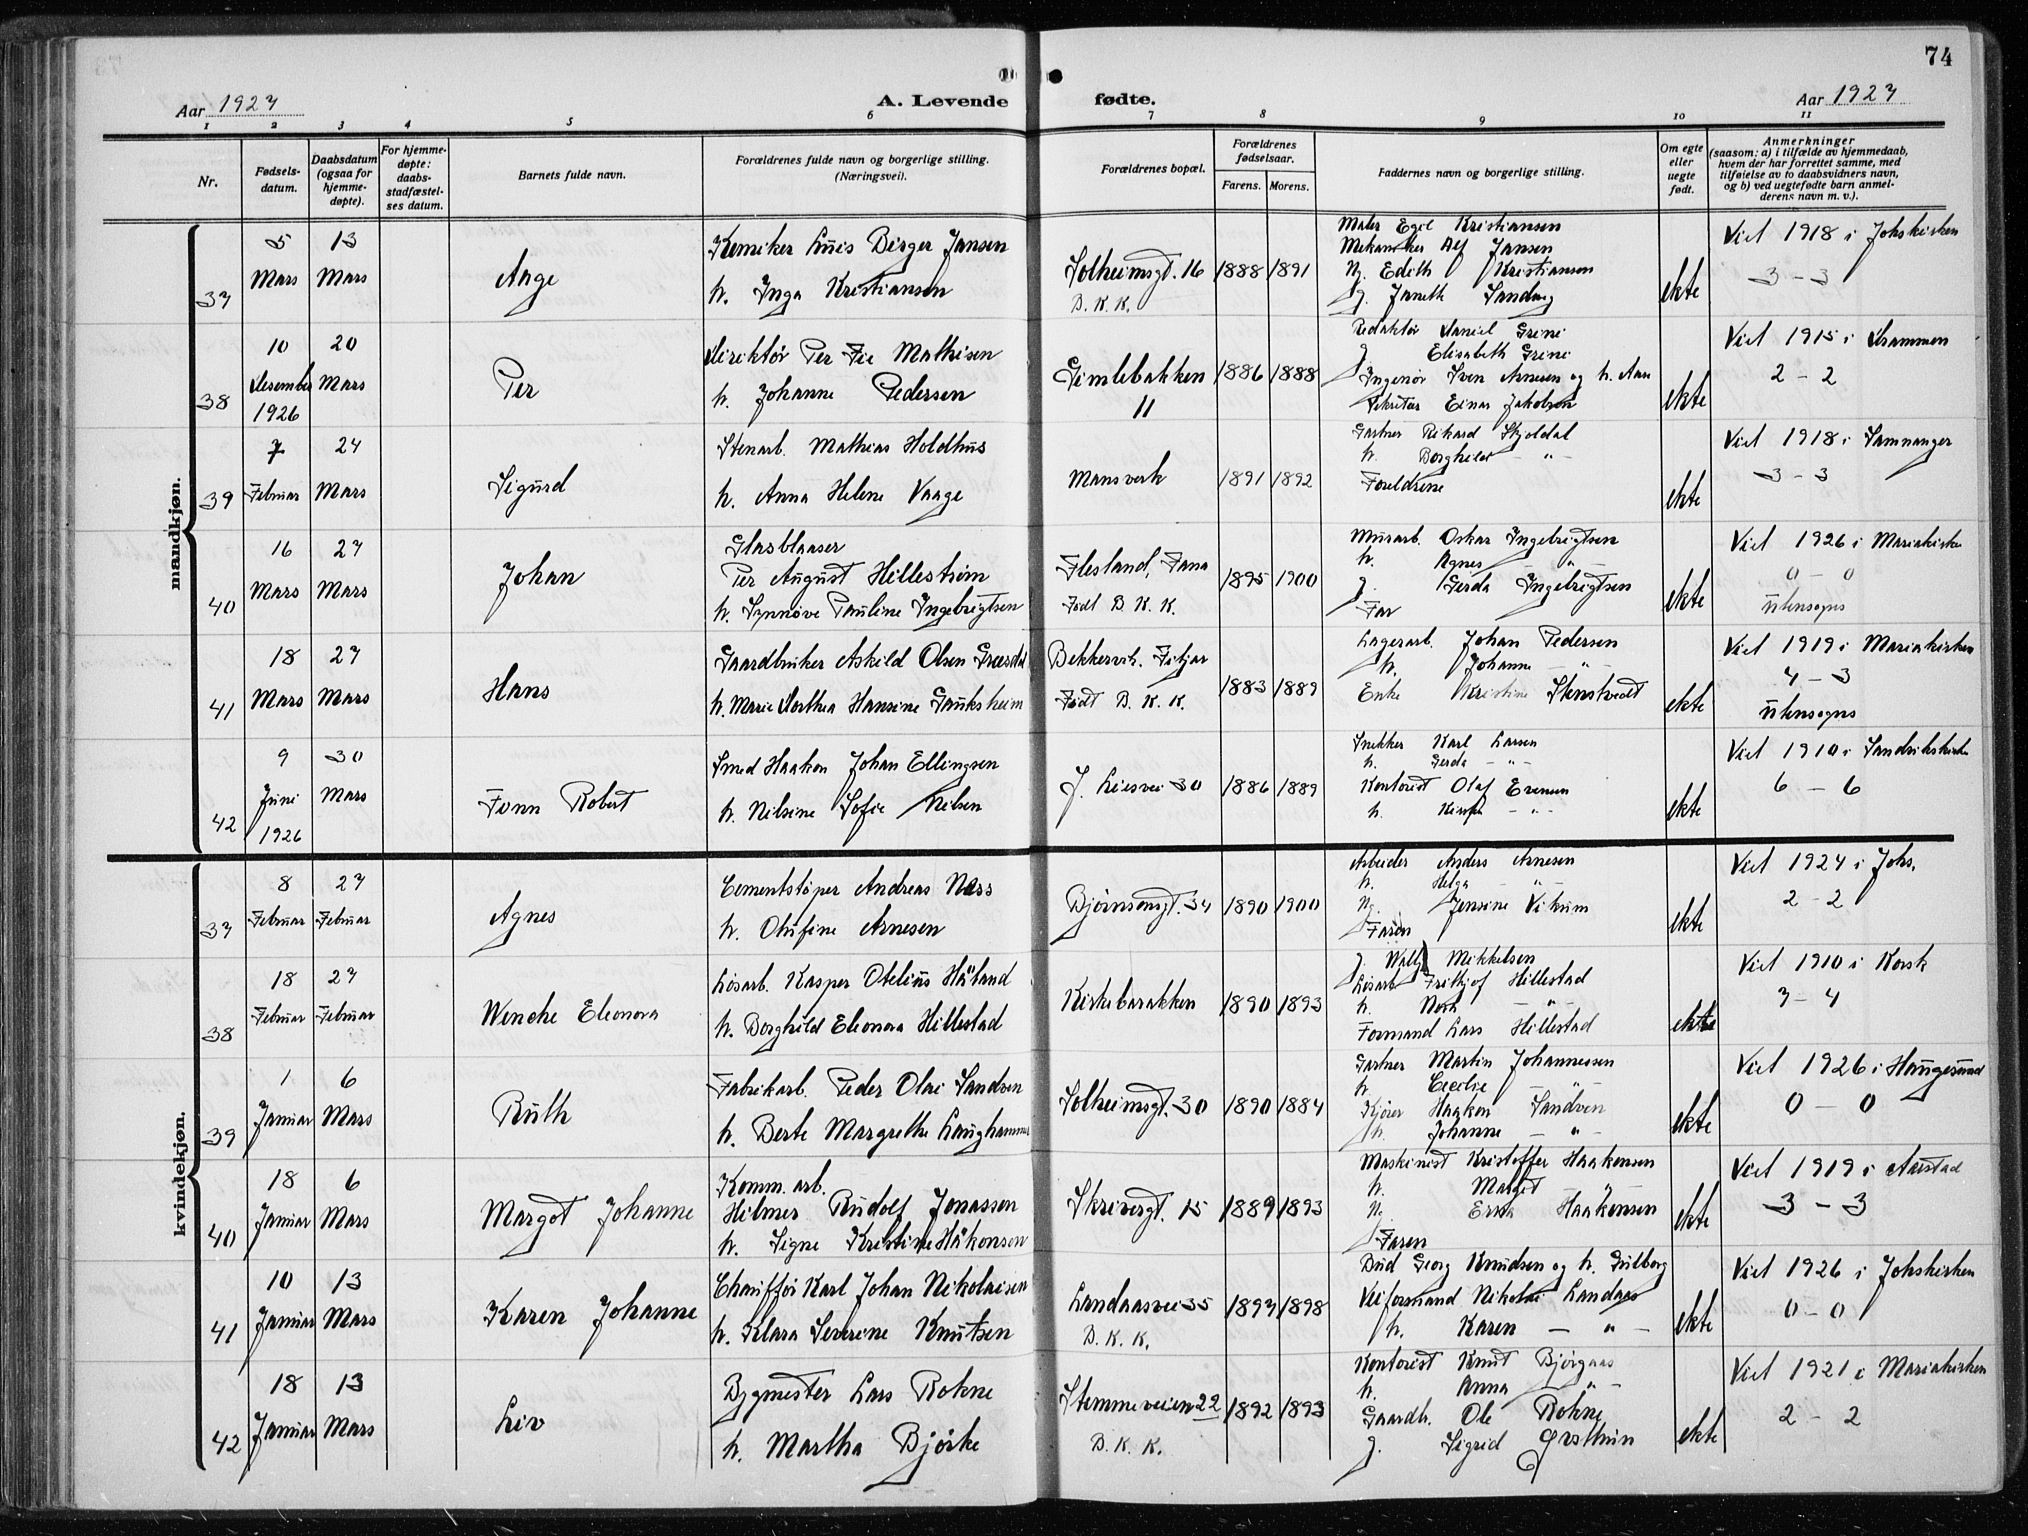 74
Aar 1927
A. Levende
fødte.
Aar 1927
1 2 3 4 5 6 7 8 9 10 11
Nr.
Fødsels-
datum.
Daabsdatum
(ogsaa for
hjemme-
døpte).
For hjemme-
døpte:
daabs-
stadfæstel-
ses datum.
Barnets fulde navn.
Forældrenes fulde navn og borgerlige stilling.
(Næringsvei).
Forældrenes bopæl.
Forældrenes
fødselsaar.
Farens. Morens.
Faddernes navn og borgerlige stilling.
Om egte
eller
uegte
født.
Anmerkninger
(saasom: a) i tilfælde av hjemmedaab,
hvem der har forrettet samme, med
tilføielse av to daabsvidners navn,
og b) ved uegtefødte barn anmel-
derens navn m. v.).
mandkjøn.
37
5
Mars
13
Mars
Aage
Kemiker Louis Birger Jansen
h. Inga Kristiansen
Solheimsgt. 16
B. K. K.
1888 1891
Maler Egil Kristiansen
Mekaniker Alf Jansen
Ng. Edith Kristiansen
g. Janeth Sandvig
ekte
Viet 1918 i Johskirken
3 - 3
38
10
Desember
1926
20
Mars
Per
Direktør Per Fie Mathisen
h. Johanne Pedersen
Gimlebakken
11
1886 1888
Redaktør Daniel Grini
g. Elisabeth Grini
Ingeniør Sven Arnesen og h. Aan
Sekretær Einar Jakobsen
ekte
Viet 1915 i Drammen
2 - 2
39
7
Februar
24
Mars
Sigurd
Stenarb. Mathias Holdhus
h. Anna Helene Vaage
Mansverk
1891 1892
Gartner Rikard Skjoldal
h. Borghild - " -
Foreldrene
ekte
Viet 1918 i Samnanger
3 - 3
40
16
Mars
27
Mars
Johan
Glasblaaser
Per August Hillestrøm
h. Synnøve Pauline Ingebrigtsen
Flesland, Fana
Født B. K. K.
1895 1900
Murarb. Oskar Ingebrigtsen
h. Agnes - " -
g. Gerda Ingebrigtsen
Far
ekte
Viet 1926 i Mariakirke
0 - 0
Utensogns
41
18
Mars
27
Mars
Hans
Gaardbruker Askild Olsen Græsdal
h. Marie Dorthea Hansine Gauksheim
Bekkervik. Fitjar
Født B. K. K.
1883 1889
Lagerarb. Johan Pedersen
h. Johanne - " -
Enke Kristine Stenstvedt
ekte
Viet 1919 i Mariakirken
4 - 3
Utensogns
42
9
Juni
1926
30
Mars
Finn Robert
Smed Haakon Johan Ellingsen
h. Nilsine Sofie Nilsen
J. Liesvei 30
1886 1889
Snekker Karl Larsen
h. Gerda - " -
Kontorist Olaf Evensen
h. - " -
ekte
Viet 1910 i Sandvikskirke
6 - 6
kvindekjøn.
37
8
Februar
27
Februar
Agnes
Cementstøper Andreas Næss
h. Olufine Arnesen
Bjørnsonsgt. 34
1890 1900
Arbeider Anders Arnesen
h. Helga - " -
Ng. Jensine Vikum
Faren
ekte
Viet 1924 i Johs.
2 - 2
38
18
Februar
27
Februar
Wenche Eleonora
Løsarb. Kasper Otelius Håland
h. Borghild Eleonora Hillestad
Kirkebarakken
1890 1893
g. Willy Mikkelsen
Løsarb. Fritkjof Hillestad
h. Nora - " -
Formand Lars Hillestad
ekte
Viet 1910 i Korsk
3 - 4
39
1
Januar
6
Mars
Ruth
Fabrikarb. Peder Olai Sandven
h. Berte Margrethe Laughammer
Solheimsgt. 30
1890 1884
Gartner Martin Johannessen
h. Cecilie - " -
Kjører Haakon Sandven
h. Johanne - " -
ekte
Viet 1926 i Haugesund
0 - 0
40
18
Januar
6
Mars
Margot Johanne
Komm. arb.
Hilmer Rudolf Jonassen
h. Signe Kristine Håkonsen
Skrivergt. 15
1889 1893
Maskinist Kristoffer Haakonsen
h. Margit - " -
Ng. Erna Haakonsen
Faren
ekte
Viet 1919 i Aarstad
3 - 3
41
10
Januar
13
Mars
Karen Johanne
Chauffør Karl Johan Nikolaisen
h. Klara Severine Knutsen
Landaasvei 35
B. K. K.
1897 1898
Bud Georg Knudsen og h. Gulborg
Veiformand Nikolai Landaas
h. Karen - " -
ekte
Viet 1926 i Johskirken
0 - 0
42
18
Januar
13
Mars
Liv
Bygmester Lars Rokne
h. Martha Bjørke
Stemmeveien 22
B. K. K.
1892 1893
Kontorist Knut Bjørgaas
h. Anna - " -
Gaardb. Ole Rokne
g. Sigrid Grsthun
ekte
Viet 1921 i Mariakirken
2 - 2